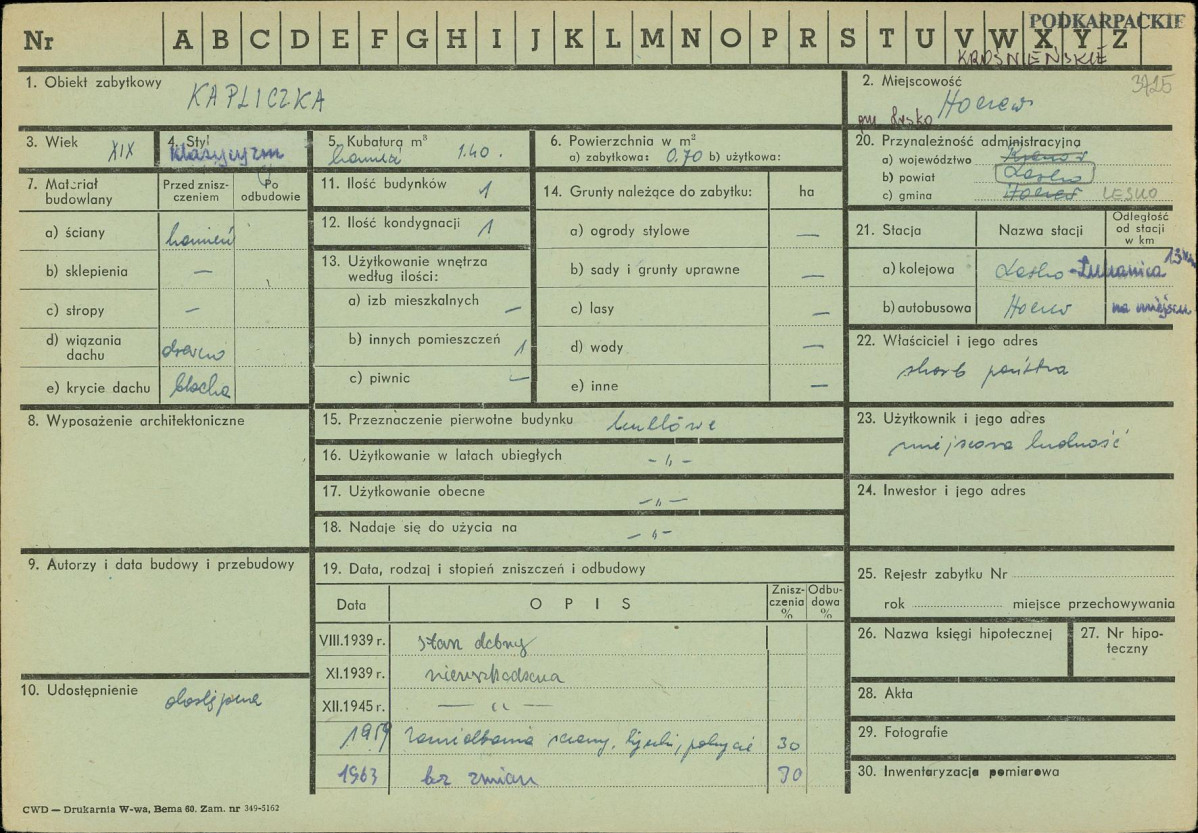 Nr A B C D E F G H I J K L M N O P R S T U V W X Y Z
PODKARPACKIE
KROŚNIEŃSKIE
1. Obiekt zabytkowy
KAPLICZKA
2. Miejscowość
3725
Hoczew
gm. Lesko
3. Wiek XIX
4. Styl
klasycyzm
5. Kubatura m³
1.40.
6. Powierzchnia w m²
a) zabytkowa: 0,70 b) użytkowa:
20. Przynależność administracyjną
a) województwo
b) powiat Lesko
c) gmina Hoczew LESKO
7. Materiał budowlany
Przed zniszczeniem
Po odbudowie
a) ściany kamień
b) sklepienia —
c) stropy —
d) wiązania dachu drewno
e) krycie dachu blacha
11. Ilość budynków 1
12. Ilość kondygnacji 1
13. Użytkowanie wnętrza według ilości:
a) izb mieszkalnych —
b) innych pomieszczeń 1
c) piwnic —
14. Grunty należące do zabytku: ha
a) ogrody stylowe —
b) sady i grunty uprawne —
c) lasy —
d) wody —
e) inne —
21. Stacja Nazwa stacji Odległość od stacji w km
a) kolejowa Lesko-Łukawica 13 km
b) autobusowa Hoczew na miejscu
22. Właściciel i jego adres
skarb państwa
8. Wyposażenie architektoniczne
15. Przeznaczenie pierwotne budynku kultowe
16. Użytkowanie w latach ubiegłych -„-
17. Użytkowanie obecne -„-
18. Nadaje się do użycia na -„-
23. Użytkownik i jego adres
miejscowa ludność
24. Inwestor i jego adres
9. Autorzy i data budowy i przebudowy
19. Data, rodzaj i stopień zniszczeń i odbudowy
Data OPIS Zniszczenia % Odbudowa %
VIII.1939 r. stan dobry
XI.1939 r. nieuszkodzona
XII.1945 r. — „ —
1959 zamiałkowania ściany, tynki, pokrycie 30
1963 bez zmian 30
25. Rejestr zabytku Nr
rok miejsce przechowywania
26. Nazwa księgi hipotecznej
27. Nr hipoteczny
10. Udostępnienie
dostępna
28. Akta
29. Fotografie
30. Inwentaryzacja pomiarowa
CWD — Drukarnia W-wa, Bema 60. Zam. nr 349-5162